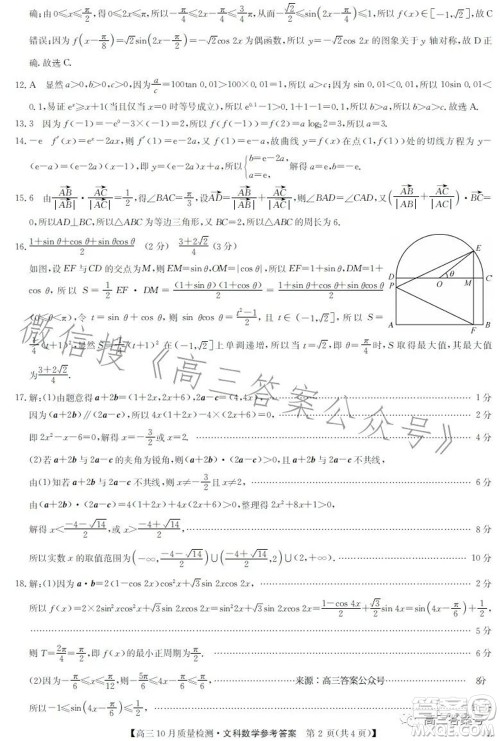 确;由0≤x≤π/2,得0≤2x≤π,所以-π/4≤2x-π/4≤3/4π,从而-√2≤√2sin(2x-π/4)≤√2,所以f(x)∈[-1,√2],故C
错误;因为f(x-π/8)=√2sin(2x-π/2)=-√2cos 2x为偶函数,所以y=-√2cos 2x的图象关于y轴对称,故D正
确.故选C.
12. A 显然a>0,b>0,c>0,因为a/c=100tan 0.01>100×0.01=1,所以a>c;因为sin 0.01<0.01,所以10sin 0.01<
0.1,易证eˣ≥x+1(当且仅当x=0时等号成立),所以e^0.1-1>0.1+1-1=0.1,所以b>a,所以b>a>c.故选A.
13. 3 因为f(-1)=-9-3×(-1)=2,所以f(f(-1))=f(2)=a log₂2=3,所以a=3.
14. -e f′(x)=eˣ-2ax,则f′(1)=e-2a,又f(1)=e-a,故曲线y=f(x)在点(1,f(1))处的切线方程为y-
(e-a)=(e-2a)(x-1),即y=(e-2a)x+a,所以{b=e-2a, a=e, 解得a=e,b=-e.
15. 6 由AB/|AB|·AC/|AC|=1/2,得∠BAC=π/3,设AD=AB/|AB|+AC/|AC|,则∠BAD=∠CAD,又(AB/|AB|+AC/|AC|)·BC=
0,所以AD⊥BC,所以△ABC为等边三角形,所以△ABC的周长为6.
16. (1+sin θ+cos θ+sin θcos θ)/2 (2分) (3+2√2)/4 (3分)
如图,设EF与CD的交点为M,则EM=sin θ,OM=|cos θ|,所以EF=1+sin θ,DM=1+
cos θ,所以S=1/2 EF·DM=(1+sin θ)(1+cos θ)/2=(1+sin θ+cos θ+sin θcos θ)/2
(0<θ<π),令t=sin θ+cos θ,则sin θcos θ=(t²-1)/2,且t∈(-1,√2],所以S=
1/4(t+1)²,显然S=1/4(t+1)²在(-1,√2]上单调递增,所以当t=√2,即θ=π/4时,S取得最大值,其最大值
为(3+2√2)/4.
17. 解:(1)由题意得a+2b=(1+2x,4+6x),2a-c=(4,4x), 1分
因为(a+2b)∥(2a-c),所以4x(1+2x)-4×(2x+6)=0, 2分
即2x²-x-6=0,解得x=-3/2或x=2. 4分
(2)若a+2b与2a-c的夹角为锐角,则(a+2b)·(2a-c)>0,且a+2b与2a-c不共线.
由(1)知若a+2b与2a-c不共线,则x≠-3/2且x≠2, 6分
由(a+2b)·(2a-c)=4(1+2x)+4x(2x+6)>0,整理得2x²+8x+1>0,
解得x<(-4-√14)/2,或x>(-4+√14)/2. 8分
所以实数x的取值范围为(-∞,(-4-√14)/2)∪((-4+√14)/2,2)∪(2,+∞). 10分
18. 解:(1)因为a·b=2(1-cos 2x)cos²x+√3sin 2xcos 2x, 2分
所以f(x)=2×2sin²xcos²x+√3sin 2xcos 2x=sin²2x+√3sin 2xcos 2x=(1-cos 4x)/2+√3/2 sin 4x=sin(4x-π/6)+1/2,
5分
则T=2π/4=π/2,即f(x)的最小正周期为π/2. 6分
(2)因为-π/6≤x≤π/12,则-5π/6≤4x-π/6≤π/6, 来源:高三答案公众号 8分
所以-1≤sin(4x-π/6)≤1/2,
【高三10月质量检测·文科数学参考答案 第2页(共4页)】
微信搜《高三答案公众号》
D
P
A
O
θ
M
E
C
F
B
高三答案号